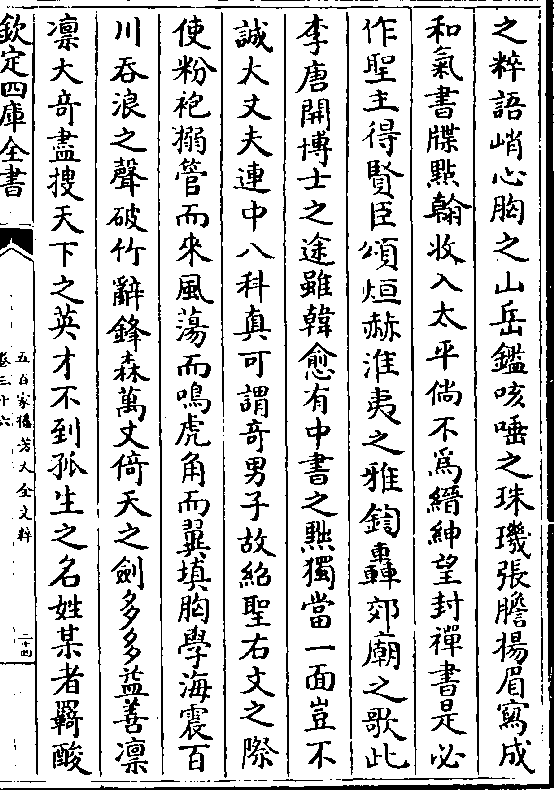 之粹語峭心胸之山岳鑑咳唾之珠璣張膽揚眉寫成
和氣書牒㸃翰收入太平倘不為縉紳望封禪書是必
作聖主得賢臣頌烜赫淮夷之雅鍧轟郊廟之歌此
李唐開博士之途雖韓愈有中書之㸃獨當一面豈不
誠大丈夫連中八科真可謂竒男子故紹聖右文之際
使粉袍搦管而來風蕩而鳴虎角而翼填胸學海震百
川吞浪之聲破竹辭鋒森萬丈倚天之劍多多益善凛
凛大竒盡搜天下之英才不到孤生之名姓某者羇酸
欽定四庫全書
五百家播芳大全文粹
卷三十六
二十四